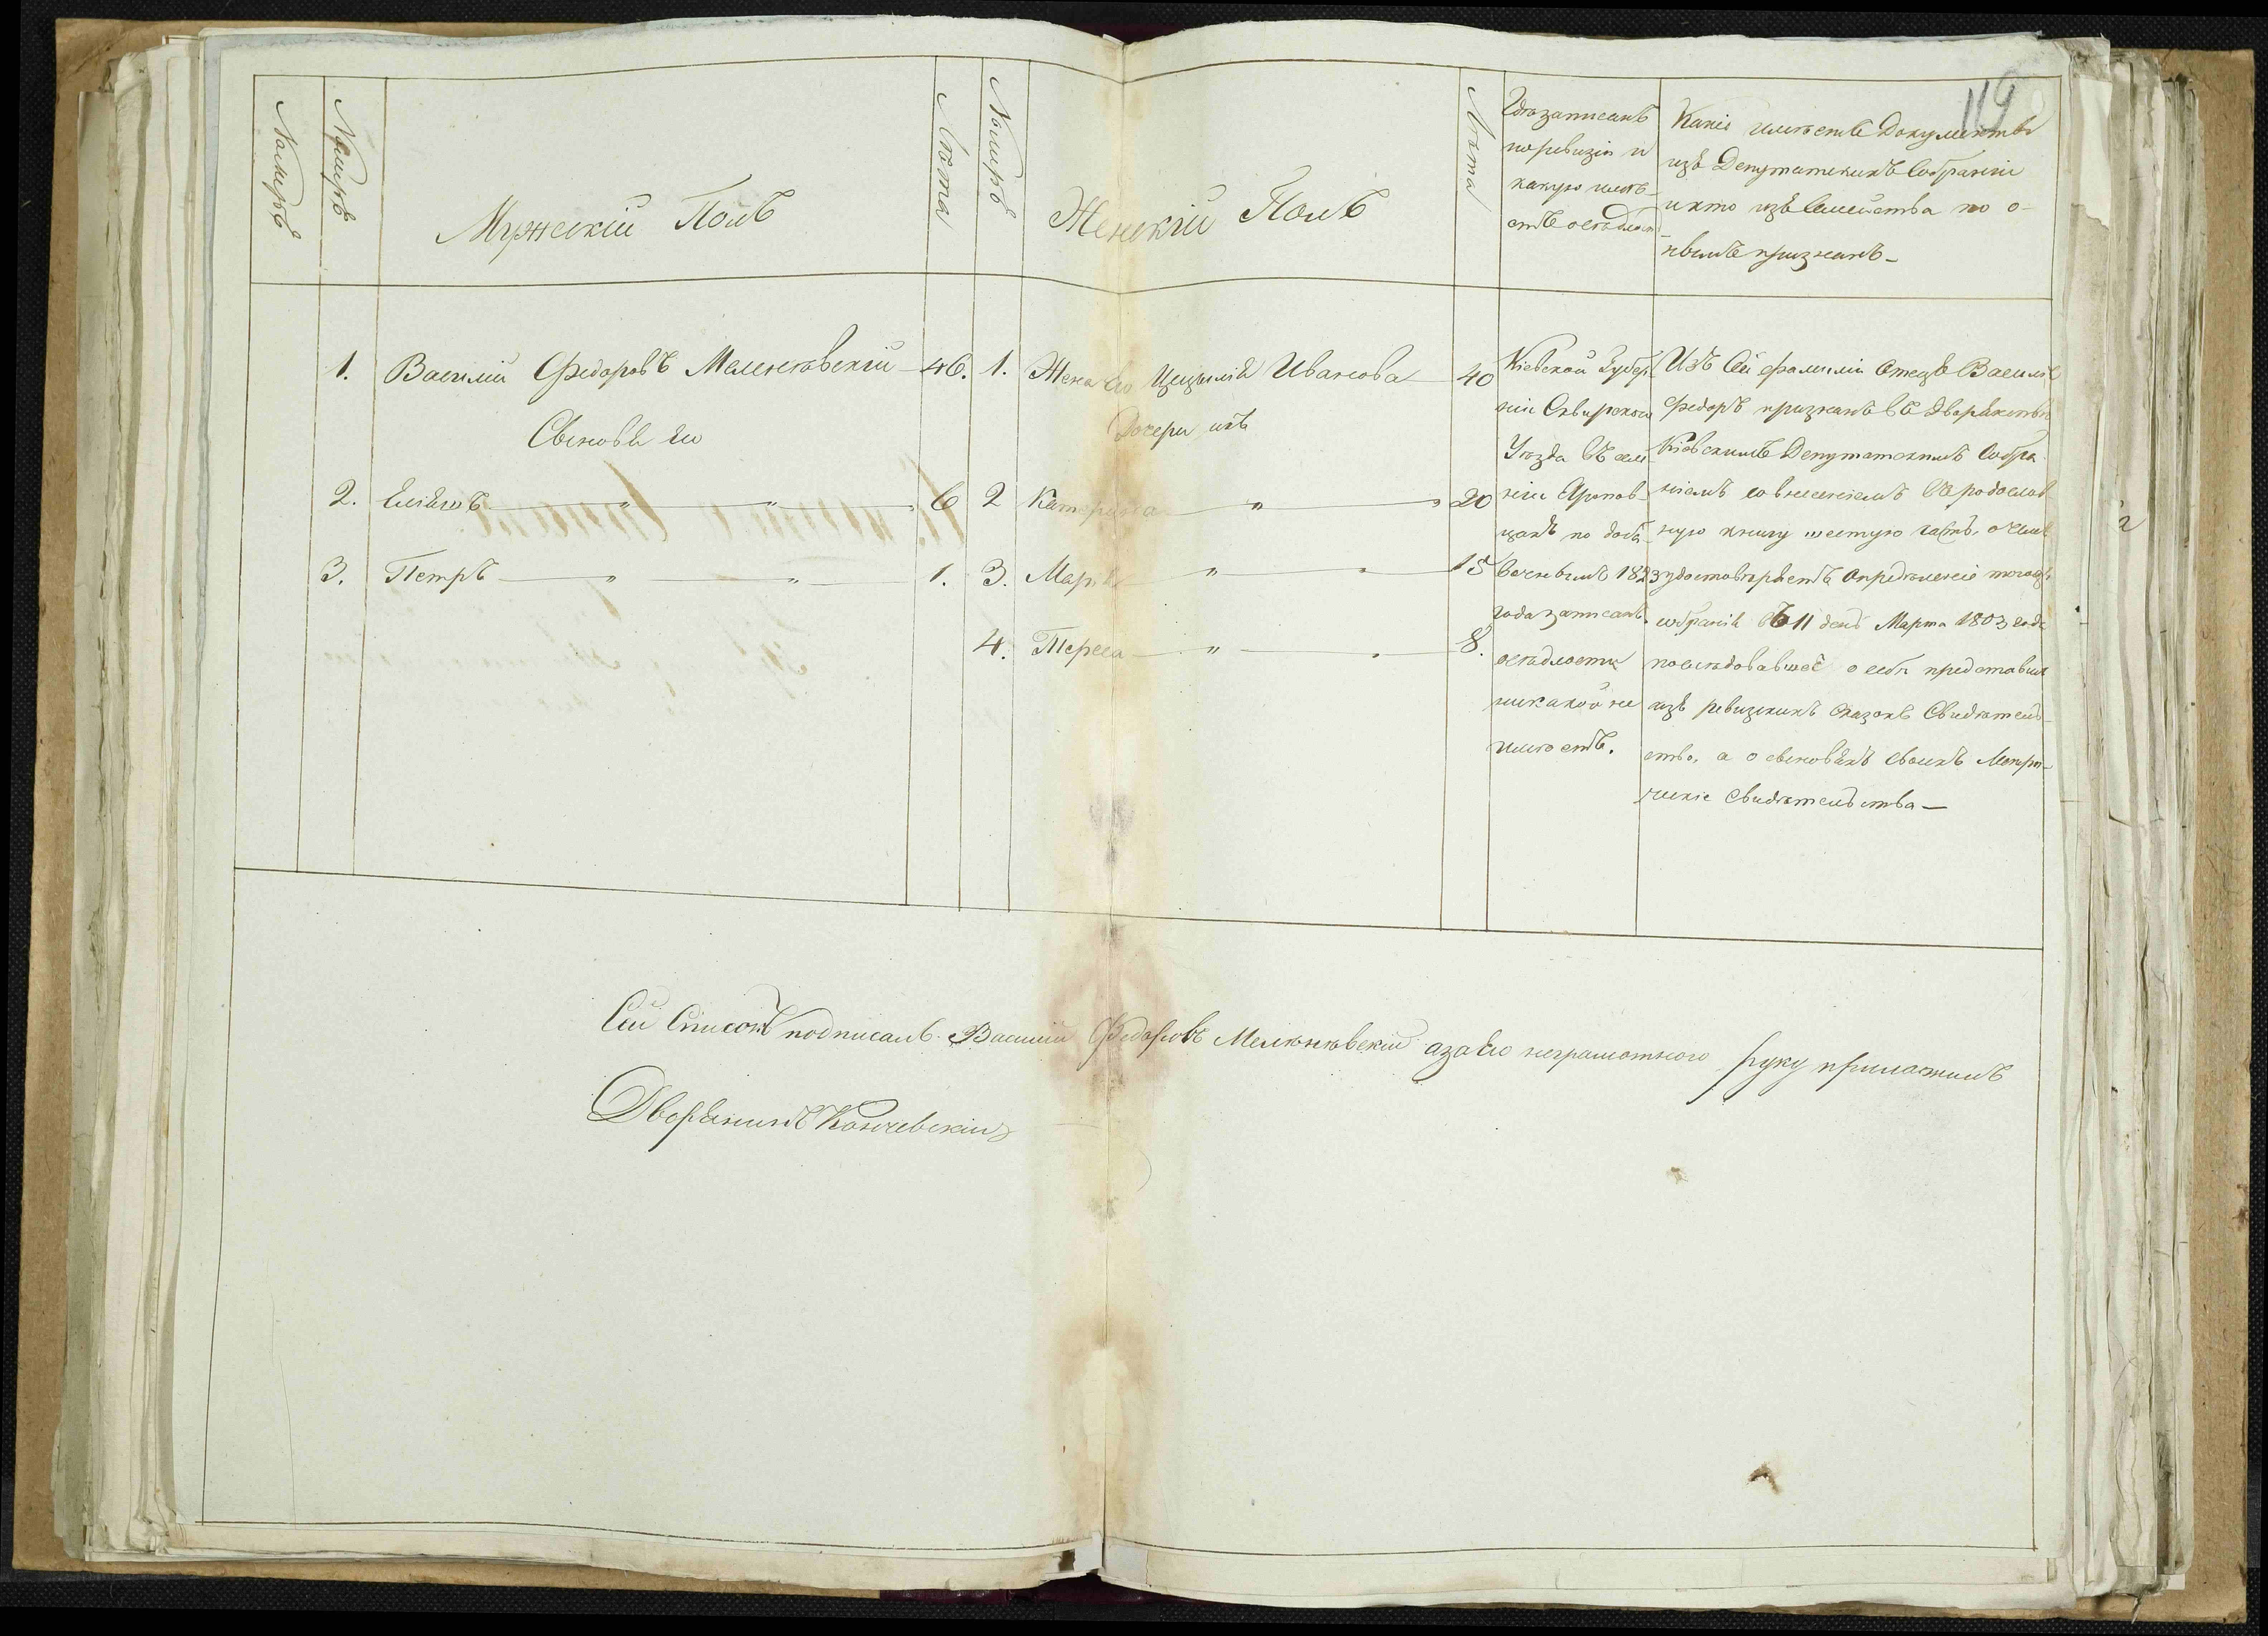 119
Номеръ
Номеръ
Мужескій Полъ
Лѣта
Номеръ
Женскій Полъ
Лѣта
Гдѣ записанъ
по ревизіи и
какую имѣ-
етъ осѣдлость
Какіе имѣетъ Документы
изъ Депутатскихъ Собраній
и кто изъ Семейства по о-
нымъ признанъ-
1. Василій Федоровъ Меленѣвскій 46.
Сыновья его
2. 6
3. Петръ " " 1.
1. Жена его Цецылія Иванова 40
Дочери ихъ
2 Катерина " " 20
3. Марія " " 15
4. Тереса " " 8.
Кіевской Губер-
ніи Сквирского
Уѣзда въ селе-
ніи
цахъ по доба-
вочнымъ 1823
года записанъ.
осѣдлости
никакой не
имѣетъ.
Изъ сей фамиліи Отецъ Василія
Федоръ признанъ въ дворянствѣ
Кіевскимъ Депутатскимъ Собра-
ніемъ со внесеніемъ въ родослов-
ную книгу шестую часть, о чемъ
удостовѣряетъ Опредѣленіе того
собранія въ 11 день Марта 1803 года
послѣдовавшее о себѣ представилъ
изъ ревизскихъ сказокъ Свидѣтель-
ство, а о сыновьяхъ своихъ Метри-
ческіе Свидѣтельства-
Сей Списокъ подписалъ Василій Федоровъ Меленѣвскій а за его неграмотного руку приложилъ
Дворянинъ